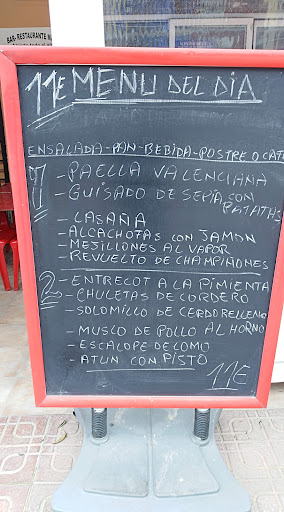 BAR-RESTAURANTE
11€ MENU DEL DIA
ENSALADA-PAN-BEBIDA-POSTRE O CAFE
1 - PAELLA VALENCIANA
- GUISADO DE SEPIA CON
PATATAS
- LASAÑA
- ALCACHOFAS CON JAMON
- MEJILLONES AL VAPOR
- REVUELTO DE CHAMPIÑONES
2 - ENTRECOT A LA PIMIENTA
- CHULETAS DE CORDERO
- SOLOMILLO DE CERDO RELLENO
- MUSLO DE POLLO AL HORNO
- ESCALOPE DE LOMO
- ATUN CON PISTO
11€